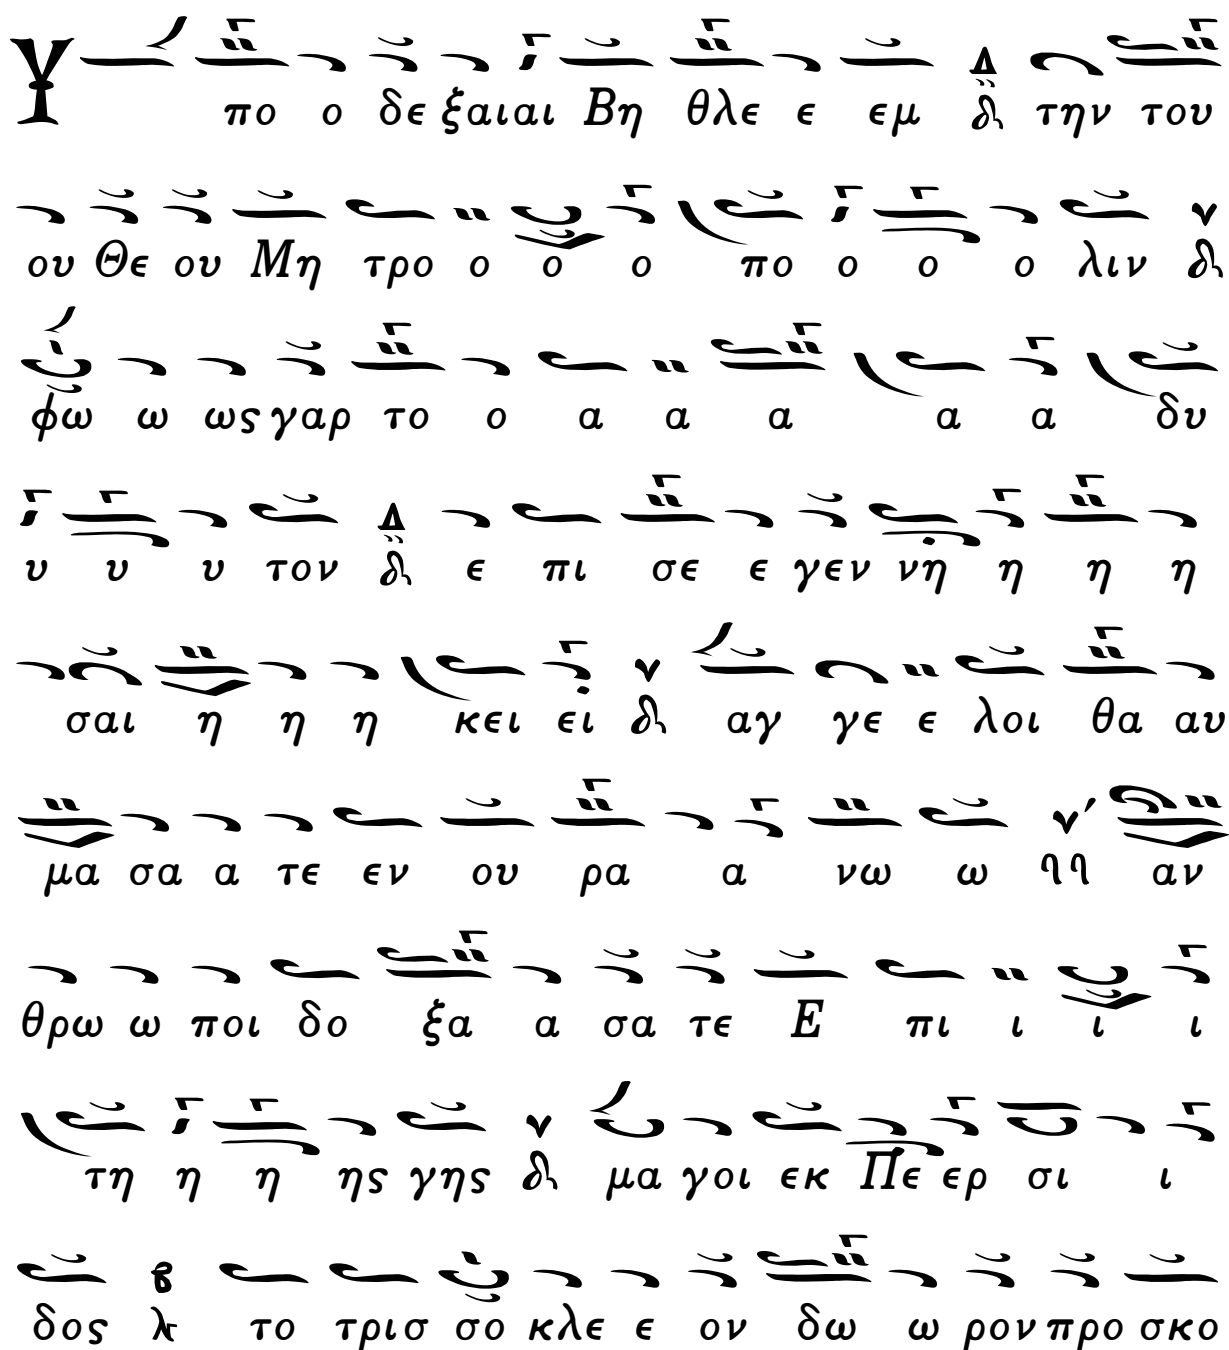 Υ πο ο δε ξαιαι Βη θλε ε εμ Δ δι την του
ου Θε ου Μη τρο ο ο ο πο ο ο ο λιν δι
φω ω ως γαρ το ο α α α α α δυ
υ υ υ τον Δ δι ε πι σε ε γεν νη η η η
σαι η η η κει ει δι αγ γε ε λοι θα αυ
μα σα α τε εν ου ρα α νω ω αν
θρω ω ποι δο ξα α σα τε Ε πι ι ι ι
τη η η ης γης δι μα γοι εκ Πε ερ σι ι
δος το τρισ σο κλε ε ον δω ω ρον προ σκο